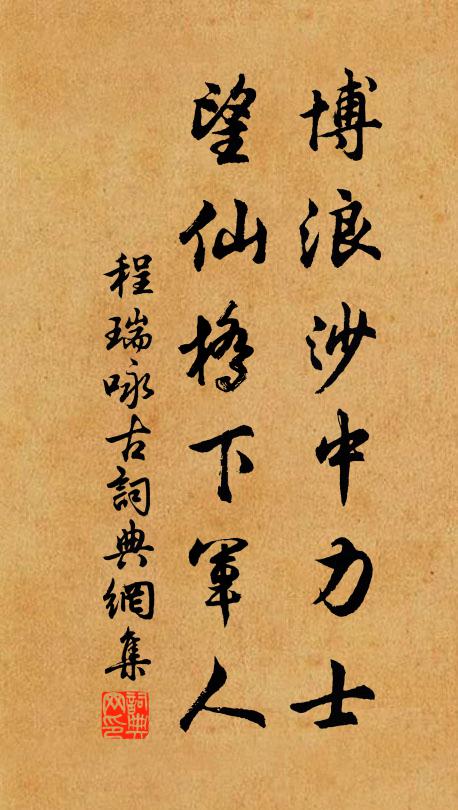 博浪沙中力士
望仙橋下軍人
程瑞咏古詞典網集
詞典網印